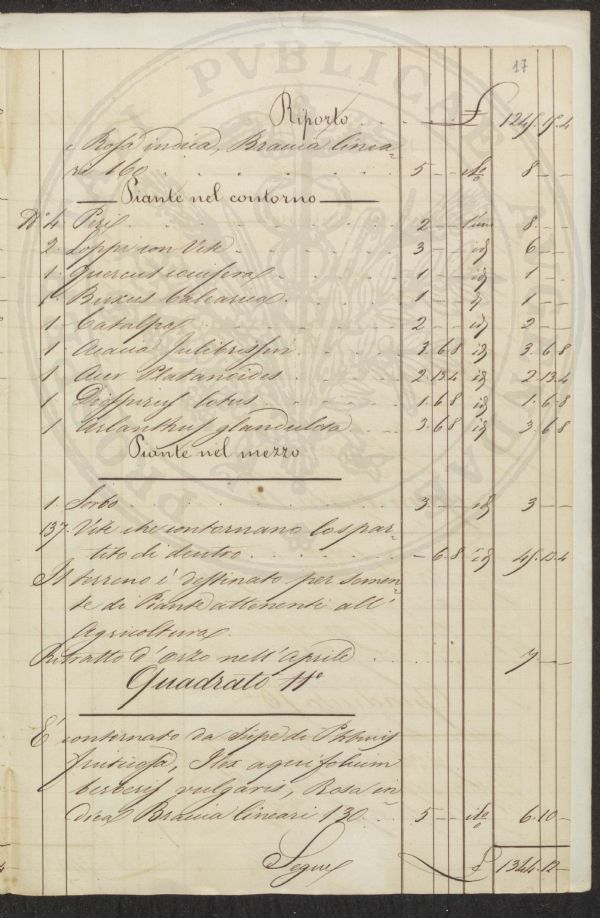 17
Riporto . . . . £ 1245.15.4
e Rosa indica, Braccia linea-
ri 160 . . . . 5 - - 8 - -
Piante nel contorno
N° 4 Piri . . . . 2 - - l'uno 8 - -
2 Loppi con Vite . . . . 3 - - id 6 - -
1 Quercus . . . . 1 - - id 1 - -
1 Buxus balearica . . . . 1 - - id 1 - -
1 Catalpa . . . . 2 - - id 2 - -
1 Acacia Julibrissin . . . . 3.6.8 id 3.6.8
1 Acer Platanoides . . . . 2.13.4 id 2.13.4
1 Diospirus lotus . . . . 1.6.8 id 1.6.8
1 Ailanthus glandulosa . . . . 3.6.8 id 3.6.8
Piante nel mezzo
1 Sorbo . . . . 3 - - id 3 - -
137 Vite che contornano lo spar-
tito di dentro . . . . - 6.8 id 45.13.4
Il terreno è destinato per semen-
te di Piante attenenti all'
Agricoltura
Ritratto d'orzo nell'Aprile . . . . 7 - -
Quadrato II°
È contornato da Siepe di
fruticosa, Ilex aquifolium
berberis vulgaris, Rosa in-
dica Braccia lineari 130 . . 5 - - 6.10 -
Segue £ 1344.12 -